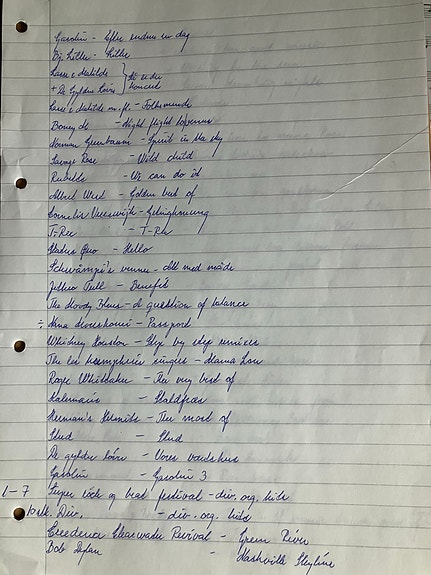 Gasolin - Efter endnu en dag
Lasse & Mathilde
+ De Gyldne Løver
Lasse & Mathilde m.fl. - Folkemunde
Boney M - Night flight to Venus
Norman Greenbaum - Spirit in the sky
Savage Rose - Wild child
Rubettes - We can do it
Albert West - Golden best of
Cornelis Vreeswijk -
T-Rex - T-Rex
Status Quo - Hello
venner - Alt med måde
Jethro Tull - Benefit
The Moody Blues - A question of balance
÷ Nana Mouskouri - Passport
Whitney Houston - Step by step remixes
The Les Humphries singers - Mama Loo
Roger Whittaker - The very best of
Kalemaris - Staldfræs
Herman's Hermits - The most of
Slud - Slud
De gyldne løver - Vores værtshus
Gasolin - Gasolin 3
1-7 Super rock og beat festival - div. org. hits
10 stk. Div. - div. org. hits
Creedence Clearwater Revival - Green River
Bob Dylan - Nashville Skyline